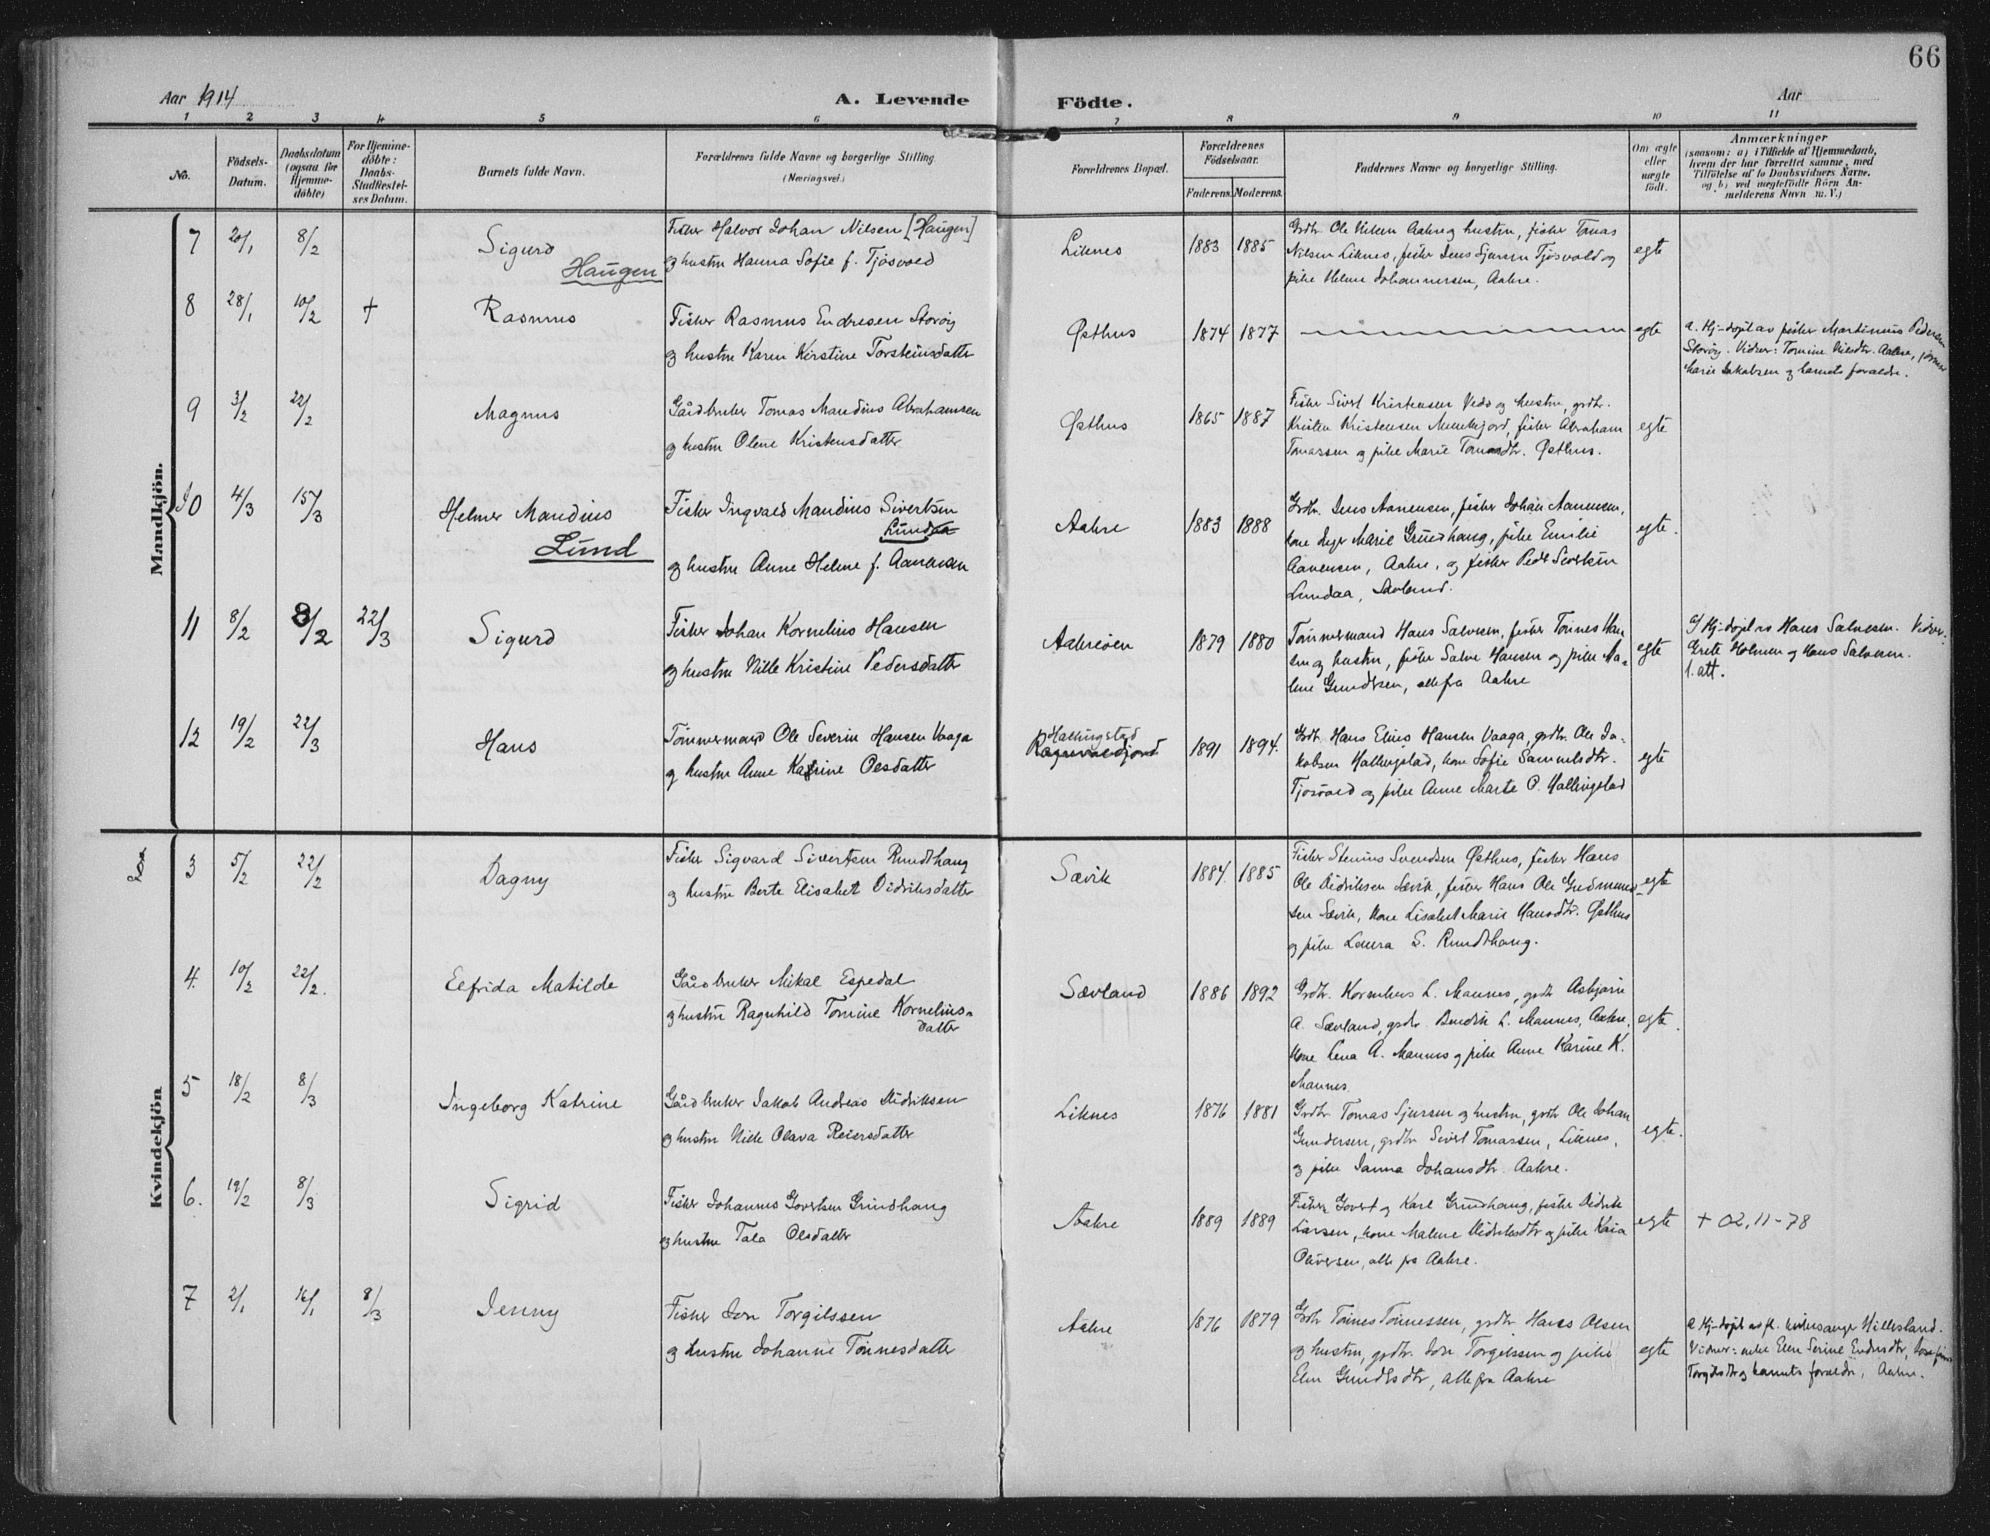 66
Aar 1914
A. Levende
Födte.
Aar
1 2 3 4 5 6 7 8 9 10 11
No.
Födsels-
Datum.
Daabsdatum
(ogsaa for
Hjemme-
döbte)
For Hjemme-
döbte:
Daabs-
Stadfæstel-
ses Datum.
Barnets fulde Navn.
Forældrenes fulde Navne og borgerlige Stilling
(Næringsvei.)
Forældrenes Bopæl.
Forældrenes
Födselsaar.
Faderens. Moderens.
Faddernes Navne og borgerlige Stilling.
Om ægte
eller
uægte
födt.
Anmærkninger
(saasom: a) i Tilfælde af Hjemmedaab,
hvem der har forrettet samme, med
Tilföielse af to Daabsvidners Navne,
og b) ved uægtefödte Börn An-
melderens Navn m. V.)
Mandkjön.
7 20/1 8/2
Sigurd
Haugen
Fisker Halvor Johan Nilsen [Haugen]
og hustru Hanna Sofie f. Tjøsvold
Liknes
1883 1885
Grdbr. Ole Nilsen Aakre og hustru, fisker Tomas
Nilsen Liknes, fisker Jens Sjursen Tjøsvold og
pike Helene Johannessen, Aakre.
egte
8 28/1 10/2 +
Rasmus
Fisker Rasmus Endresen Storøy
og hustru Karen Kirstine Torsteinsdatter
Østhus
1874 1877
egte
a. Hj-døpt av fisker Martinius Pedersen
Storøy. Vidner: Tomine Nilsdtr. Aakre,
Marie Jakobsen og barnets forældre.
9 3/2 22/2
Magnus
Gårdbruker Tomas Mandius Abrahamsen
og hustru Olene Kristensdatter
Østhus
1865 1887
Fisker Sivert Kristensen Vedø og hustru, grdbr.
Kristen Kristensen Munkejord, fisker Abraham
Tomassen og pike Marie Tomasdtr. Østhus.
egte
10 4/3 15/3
Helmer Mandius
Lund
Fisker Ingvald Mandius Sivertsen
Lundaa
og hustru Anne Helene f. Aanensen
Aakre
1883 1888
Grdbr. Jens Aanensen, fisker Johan Aanensen,
kone Inger Marie Grindhaug, pike Emilie
Aanensen, Aakre, og fisker Peder Sivertsen
Lundaa, Sævland.
egte.
11 8/2 8/2 22/3
Sigurd
Fisker Johan Kornelius Hansen
og hustru Nille Kristine Pedersdatter
Aakreøen
1879 1880
Tømmermand Hans Salvesen, fisker Tønnes Han
sen og hustru, fisker Salve Hansen og pike Ma-
lene Gundersen, alle fra Aakre
egte
Hj-døpt av Hans Salvesen. Vidner:
Grete Holmen og Hans Salvesen.
l. att.
12 19/2 22/3
Hans
Tømmermand Ole Severin Hansen Vaaga
og hustru Anne Katrine Olsdatter
Hallingstad
1891 1894.
Grdbr. Hans Elias Hansen Vaaga, grdbr. Ole Ja-
kobsen Hallingstad, kone Sofie Samuelsdtr.
Tjøsvold og pike Anne Marta O. Hallingstad
egte
Kvindekjön
3 5/2 22/2
Dagny
Fisker Sigvard Sivertsen Rundhaug
og hustru Berte Elisabet Didriksdatter
Sævik
1884. 1885
Fisker Stenius Svendsen Østhus, fisker Hans
Ole Didriksen Sævik, fisker Hans Ole Gudmund-
sen Sævik, kone Lisabet Marie Hansdtr. Østhus
og pike Laura S. Rundhaug.
egte
4. 10/2 22/2.
Elfrida Matilde
Gårdbruker Mikal Espedal
og hustru Ragnhild Tomine Kornelius-
datter
Sævland
1886 1892
Grdbr. Kornelius L. Mannes, grdbr Asbjørn
A. Sævland, grdbr. Bendik L. Mannes, Aakre,
kone Lena A. Mannes og pike Anne Karine K.
Mannes
egte.
5 18/2 8/3
Ingeborg Katrine
Gårdbruker Jakob Andreas Didriksen
og hustru Nille Olava Reiersdatter
Liknes
1876 1881
Grdbr. Tomas Sjursen og hustru, grdbr Ole Johan
Gundersen, grdbr Sivert Tomassen, Liknes,
og pike Janna Johansdtr. Aakre.
egte.
6. 19/2 8/3
Sigrid
Fisker Johannes Govertsen Grindhaug
og hustru Tala Olsdatter
Aakre
1889 1889
Fisker Govert og Karl Grindhaug, fisker Didrik
Larsen, kone Malene Didriksdtr og pike Kaia
Oliversen, alle fra Aakre.
egte
+ 02,11-78
7 2/1 16/1 8/3
Jenny
Fisker Jon Torgilssen
og hustru Johanne Tønnesdatter
Aakre
1876 1879
Grdbr Tønnes Tønnessen, grdbr Hans Olsen
og hustru, grdbr. Jon Torgilssen og pike
Elen Gundersdtr, alle fra Aakre
egte
a Hj-døpt av fl. kirkesanger Hillesland.
Vidner: enke Elen Serine Endresdtr,
Torgilsdtr og barnets forældre, Aakre.